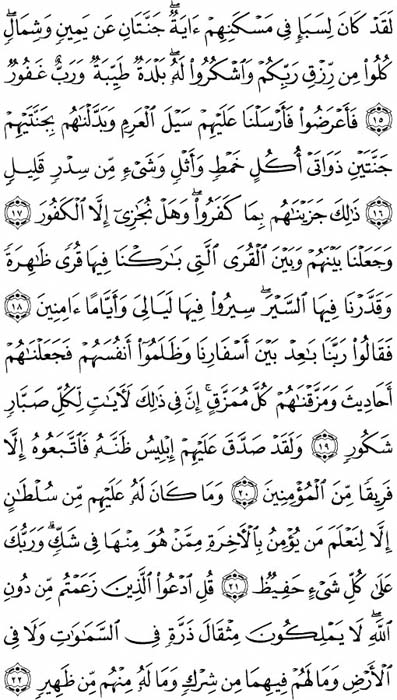 لَقَدۡ كَانَ لِسَبَإٖ فِي مَسۡكَنِهِمۡ ءَايَةٞۖ جَنَّتَانِ عَن يَمِينٖ وَشِمَالٖۖ
كُلُواْ مِن رِّزۡقِ رَبِّكُمۡ وَٱشۡكُرُواْ لَهُۥۚ بَلۡدَةٞ طَيِّبَةٞ وَرَبٌّ غَفُورٞ
١٥ فَأَعۡرَضُواْ فَأَرۡسَلۡنَا عَلَيۡهِمۡ سَيۡلَ ٱلۡعَرِمِ وَبَدَّلۡنَٰهُم بِجَنَّتَيۡهِمۡ
جَنَّتَيۡنِ ذَوَاتَيۡ أُكُلٍ خَمۡطٖ وَأَثۡلٖ وَشَيۡءٖ مِّن سِدۡرٖ قَلِيلٖ
١٦ ذَٰلِكَ جَزَيۡنَٰهُم بِمَا كَفَرُواْۖ وَهَلۡ نُجَٰزِيٓ إِلَّا ٱلۡكَفُورَ ١٧
وَجَعَلۡنَا بَيۡنَهُمۡ وَبَيۡنَ ٱلۡقُرَى ٱلَّتِي بَٰرَكۡنَا فِيهَا قُرٗى ظَٰهِرَةٗ
وَقَدَّرۡنَا فِيهَا ٱلسَّيۡرَۖ سِيرُواْ فِيهَا لَيَالِيَ وَأَيَّامًا ءَامِنِينَ ١٨
فَقَالُواْ رَبَّنَا بَٰعِدۡ بَيۡنَ أَسۡفَارِنَا وَظَلَمُوٓاْ أَنفُسَهُمۡ فَجَعَلۡنَٰهُمۡ
أَحَادِيثَ وَمَزَّقۡنَٰهُمۡ كُلَّ مُمَزَّقٍۚ إِنَّ فِي ذَٰلِكَ لَأٓيَٰتٖ لِّكُلِّ صَبَّارٖ
شَكُورٖ ١٩ وَلَقَدۡ صَدَّقَ عَلَيۡهِمۡ إِبۡلِيسُ ظَنَّهُۥ فَٱتَّبَعُوهُ إِلَّا
فَرِيقٗا مِّنَ ٱلۡمُؤۡمِنِينَ ٢٠ وَمَا كَانَ لَهُۥ عَلَيۡهِم مِّن سُلۡطَٰنٍ
إِلَّا لِنَعۡلَمَ مَن يُؤۡمِنُ بِٱلۡأٓخِرَةِ مِمَّنۡ هُوَ مِنۡهَا فِي شَكّٖۗ وَرَبُّكَ
عَلَىٰ كُلِّ شَيۡءٍ حَفِيظٞ ٢١ قُلِ ٱدۡعُواْ ٱلَّذِينَ زَعَمۡتُم مِّن دُونِ
ٱللَّهِ لَا يَمۡلِكُونَ مِثۡقَالَ ذَرَّةٖ فِي ٱلسَّمَٰوَٰتِ وَلَا فِي
ٱلۡأَرۡضِ وَمَا لَهُمۡ فِيهِمَا مِن شِرۡكٖ وَمَا لَهُۥ مِنۡهُم مِّن ظَهِيرٖ ٢٢